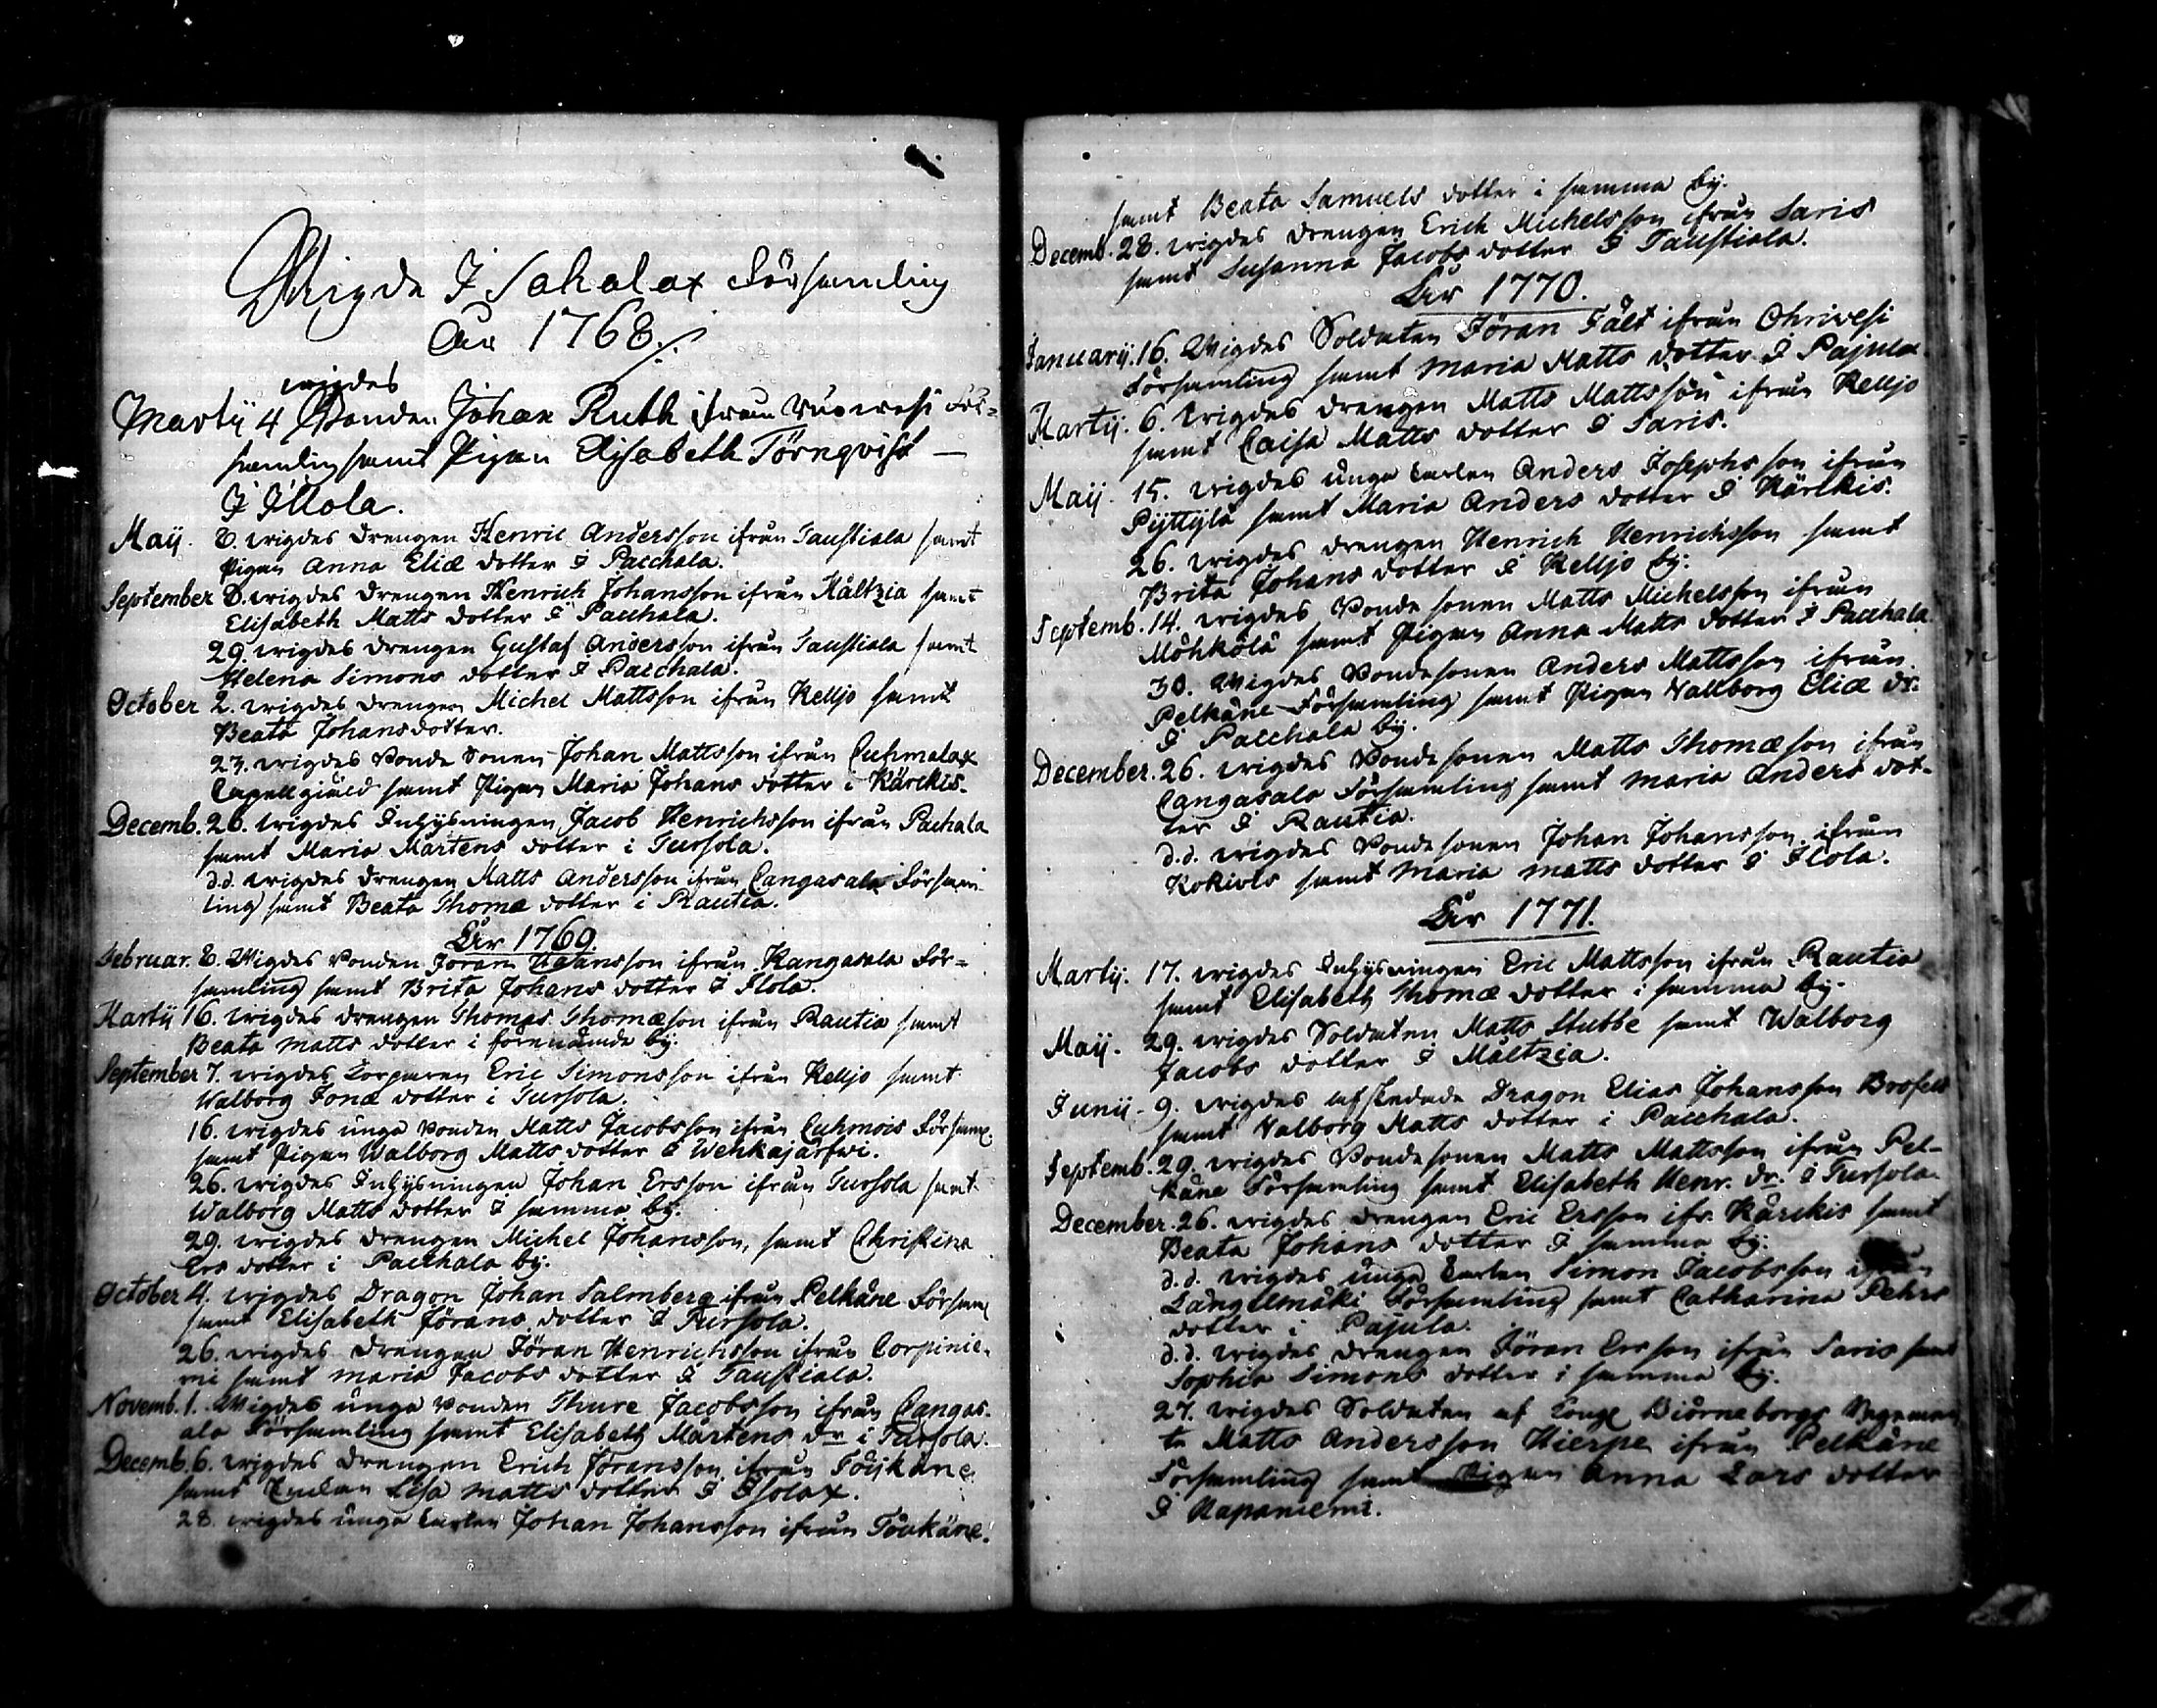 Wigde I Sahalax Församling
Åhr 1768./.
wigdes
Martij 4 Bonden Johan Ruth ifrån Ruovesi För=
samling samt Pigan Elisabeth Törnqvist —
I Illola.
Maij. 8. wigdes Drengen Henric Andersson ifrån Taustiala samt
Pigan Anna Eliæ dotter I Pacchala.
September 8. wigdes Drengen Henrich Johansson ifrån Mältzia samt
Elisabeth Matts dotter I Pacchala.
29. wigdes Drengen Gustaf Andersson ifrån Taustiala samt
Helena Simons dotter I Pacchala.
October 2. wigdes Drengen Michel Mattsson ifrån Keljo samt
Beata Johansdotter.
27. wigdes Bonde Sonen Johan Mattsson ifrån Cuhmalax
Capellgiäld samt Pigan Maria Johans dotter i Kärckis.
Decemb. 26. wigdes Inhysningen Jacob Henrichsson ifrån Pachala
samt Maria Mårtens dotter i Tursola.
d.d. wigdes Drengen Matts Andersson ifrån Cangasala Församm-
ling samt Beata Thomæ dotter i Rautia.
Åhr 1769.
Februar. 8. Wigdes Bonden Jöran Johansson ifrån Kangasala För=
samling samt Brita Johans dotter I Ilola.
Martij 16. wigdes Drengen Thomas Thomæson ifrån Rautia samt
Beata Matts dotter i förenämde by.
September 7. wigdes Torparen Eric Simonsson ifrån Keljo samt
Walborg Jonæ dotter i Tursola.
16. wigdes unga Bonden Matts Jacobsson ifrån Cuhmois Församl.
samt Pigan Walborg Matts dotter I Wehkajärfwi.
26. wigdes Inhysningen Johan Ersson ifrån Tursola samt
Walborg Matts dotter I samma by.
29. wigdes Drengen Michel Johansson, samt Christina
Ers dotter i Pacchala by.
October 4. wigdes Dragon Johan Salmberg ifrån Pelkäne Församl
samt Elisabeth Jörans dotter I Tursola.
26. wigdes Drengen Jöran Henrichsson ifrån Corpinie-
mi samt Maria Jacobs dotter I Taustiala.
Novemb. 1. Wigdes unga Bonden Thure Jacobsson ifrån Cangas-
ala Församling samt Elisabeth Mårtens dr i Tursola.
Decemb. 6. wigdes Drengen Erich Jöransson ifrån
samt Enkan Lisa Matts dotter I Isolax.
28. wigdes unga Karlen Johan Johansson ifrån
samt Beata Samuels dotter i samma by.
Decemb. 28. wigdes Drengen Erich Michelsson ifrån Saris
samt Susanna Jacobs dotter I Taustiala.
Åhr 1770.
Januarij. 16. Wigdes Soldaten Jöran Fält ifrån Ohrivesi
Församling samt Maria Matts dotter I Pajula.
Martij. 6. wigdes Drengen Matts Mattsson ifrån Keljo
samt Caisa Matts dotter I Saris.
Maij. 15. wigdes unga Karlen Anders Josephsson ifrån
Pyttylä samt Maria Anders dotter I Kärckis.
26. wigdes Drengen Henrich Henrichsson samt
Brita Johans dotter I Keljo by.
Septemb. 14. wigdes Bonde sonen Matts Michelsson ifrån
Möhkölä samt Pigan Anna Matts dotter I Pacchala.
30. Wigdes Bondesonen Anders Mattsson ifrån
Pelkäne Församling samt Pigan Wallborg Eliæ dr.
I Pacchala by.
December. 26. wigdes Bondesonen Matts Thomæson ifrån
Cangasala Församling samt Maria Anders dot-
ter I Rautia.
d.d. wigdes Bondesonen Johan Johansson ifrån
Kokiois samt Maria Matts dotter I Ilola.
Åhr 1771.
Martij. 17. wigdes Inhysningen Eric Mattsson ifrån Rautia
samt Elisabeth Thomæ dotter i samma by.
Maij. 29. wigdes Soldaten Matts Stubbe samt Walborg
Jacobs dotter I Mältzia.
Junij. 9. wigdes afskedade Dragon Elias Johansson Brofelt
samt Valborg Matts dotter i Pacchala.
Septemb. 29. wigdes Bondesonen Matts Mattsson ifrån Pel-
käne Församling samt Elisabeth Henr. dr. I Tursola.
December. 26. wigdes Drengen Eric Ersson ifr. Kärckis samt
Beata Johans dotter I samma by.
d.d. wigdes unga Karlen Simon Jacobsson ifrån
Längelmäki Församling samt Catharina Pehrs
dotter i Pajula.
d.d. wigdes Drengen Jöran Ersson ifrån Saris samt
Sophia Simons dotter i samma by.
27. wigdes Soldaten af Kongl Biörneborgs Regemen
te Matts Andersson Hierpe ifrån Pelkäne
Församling samt Pigan Anna Lars dotter
I Kapaniemi.